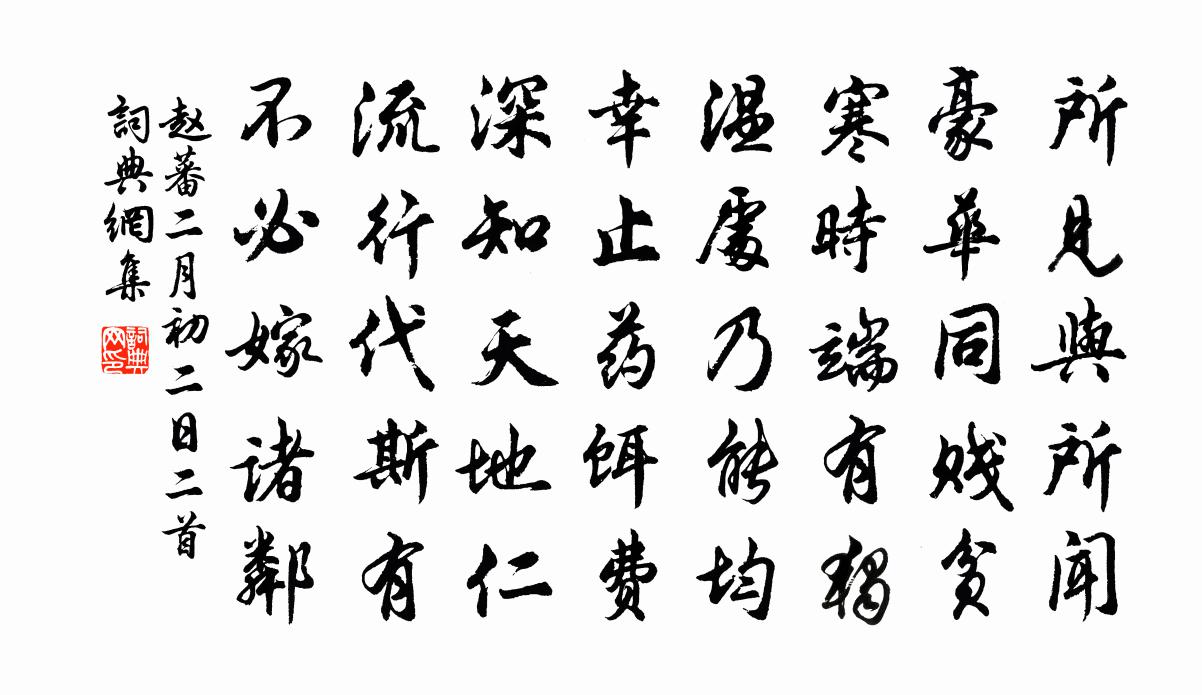 所見與所聞
豪華同賤貧
寒時端有獨
溫處乃能均
幸止药餌費
深知天地仁
流行代斯有
不必嫁諸鄰
赵蕃二月初二日二首
詞典網集
詞典网印